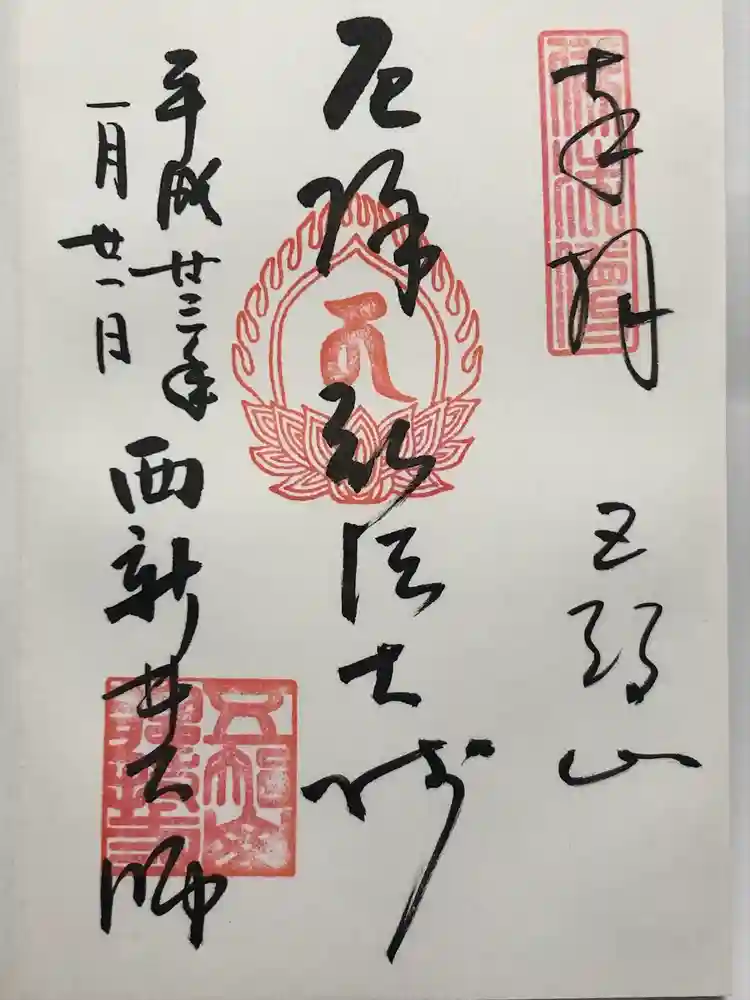 奉拝
五智山
厄除弘法大師
平成廿三年
一月廿一日
西新井大師
五智山
總持寺